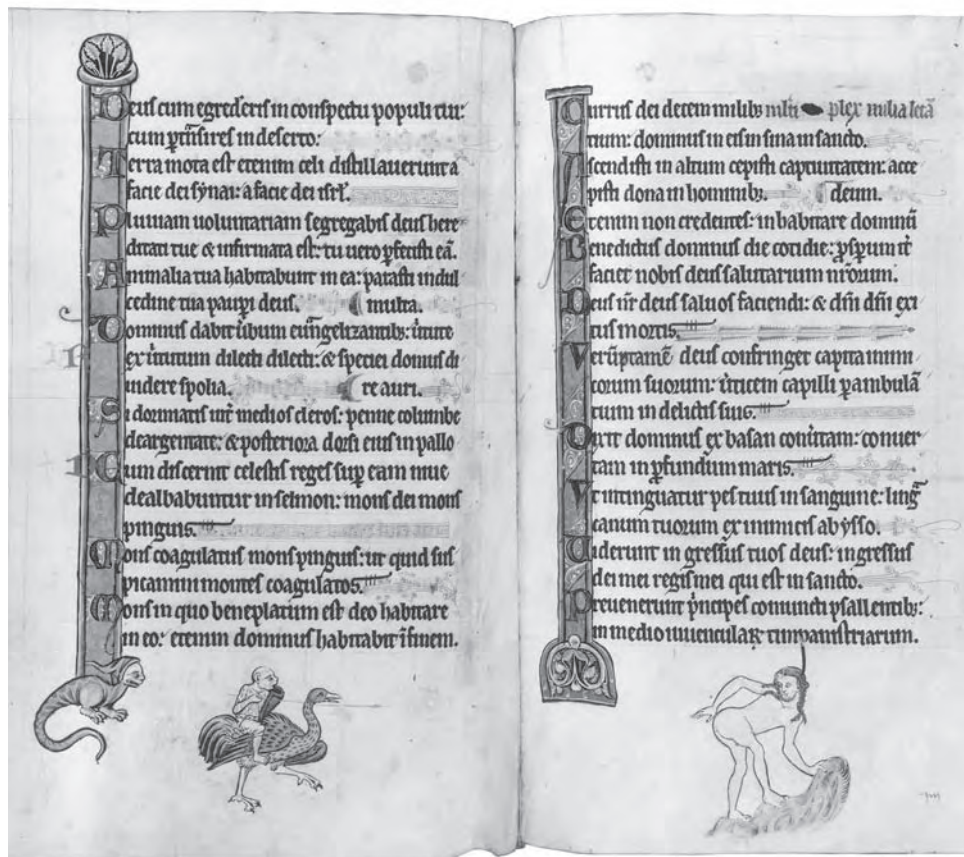 Deus cum egrederis in conspectu populi tui:
cum ptñsires in deserto:
Terra mota est etenim celi distillaverunt a
facie dei synai: a facie dei isrł.
Pluuiam uoluntariam segregabis deus here
ditati tue & infirmata est: tu uero pfecisti eã.
Animalia tua habitabunt in ea: parasti in dul
cedine tua paupi deus. multa.
Dominus dabit ũbum euũngelizantib: ũtute
ex ũtutum dilecti dilecti: & speciei domus di
uidere spolia. re auri.
Si dormiatis int̃ medios cleros: penne columbe
deargentate: & posteriora dorsi eius in pallo
Dum discernit celestis reges sup eam niue
dealbabuntur in selmon: mons dei mons
pinguis.
Mons coagulatus mons pinguis: ut quid sus
picamini montes coagulatos.
Mons in quo beneplacitum est deo habitare
in eo: etenim dominus habitabit ĩ finem.
Currus dei decem milib; mlti plex milia letã
tium: dominus in eis in sina in sancto.
Ascendisti in altum cepisti captiuitatem: acce
pisti dona in hominib;. deum.
Etenim non credentes: inhabitare dominũ
Benedictus dominus die cotidie: pspum it̃
faciet nobis deus salutarium nr̃orum.
Deus nr̃ deus saluos faciendi: & dñi dñi exi
tus mortis.
Verũptamẽ deus confringet capita inimi
corum suorum: ũticem capilli pambulã
tium in delictis suis.
Dixit dominus ex basan conũtam: conuer
tam in pfundum maris.
Vt intinguatur pes tuus in sanguine: lingã
canum tuorum ex inimicis ab ysso.
Uiderunt in gressus tuos deus: ingressus
dei mei regis mei qui est in sancto.
Preuenerunt p̃ncipes coniuncti psallentib;:
in medio iuuencularꝝ timpanistriarum.